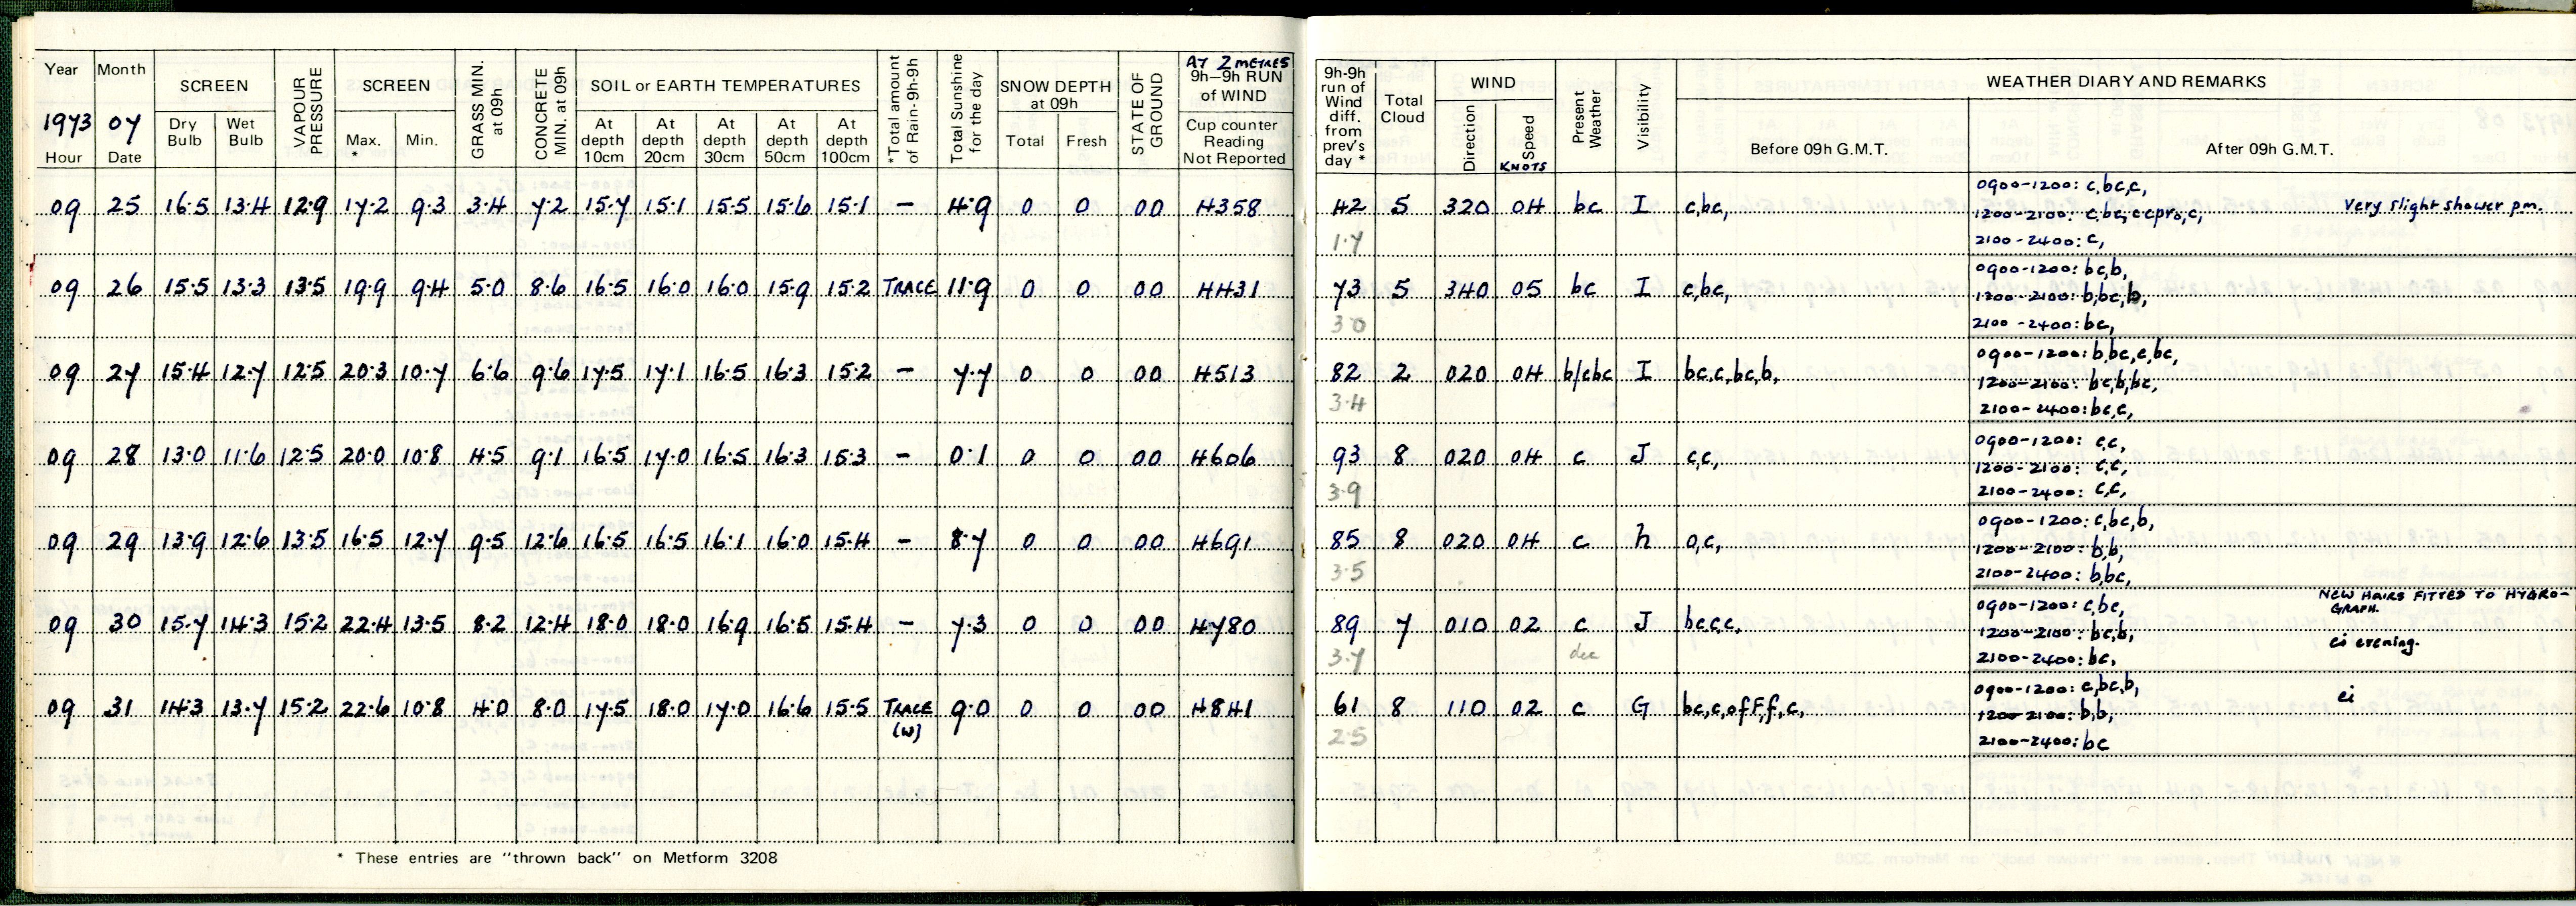 Year Month SCREEN VAPOUR PRESSURE SCREEN GRASS MIN. at 09h CONCRETE MIN. at 09h SOIL or EARTH TEMPERATURES *Total amount of Rain-9h-9h Total Sunshine for the day SNOW DEPTH at 09h STATE OF GROUND AT 2 METRES 9h–9h RUN of WIND
1973 07 Dry Bulb Wet Bulb Max. * Min. At depth 10cm At depth 20cm At depth 30cm At depth 50cm At depth 100cm Total Fresh Cup counter Reading Not Reported
Hour Date
09 25 16.5 13.4 12.9 17.2 9.3 3.4 7.2 15.7 15.1 15.5 15.6 15.1 – 4.9 0 0 00 4358
09 26 15.5 13.3 13.5 19.9 9.4 5.0 8.6 16.5 16.0 16.0 15.9 15.2 TRACE 11.9 0 0 00 4431
09 27 15.4 12.7 12.5 20.3 10.7 6.6 9.6 17.5 17.1 16.5 16.3 15.2 – 7.7 0 0 00 4513
09 28 13.0 11.6 12.5 20.0 10.8 4.5 9.1 16.5 17.0 16.5 16.3 15.3 – 0.1 0 0 00 4606
09 29 13.9 12.6 13.5 16.5 12.7 9.5 12.6 16.5 16.5 16.1 16.0 15.4 – 8.7 0 0 00 4691
09 30 15.7 14.3 15.2 22.4 13.5 8.2 12.4 18.0 18.0 16.9 16.5 15.4 – 7.3 0 0 00 4780
09 31 14.3 13.7 15.2 22.6 10.8 4.0 8.0 17.5 18.0 17.0 16.6 15.5 TRACE (W) 9.0 0 0 00 4841
* These entries are "thrown back" on Metform 3208
9h-9h run of Wind diff. from prev's day * Total Cloud WIND Present Weather Visibility WEATHER DIARY AND REMARKS
Direction Speed KNOTS Before 09h G.M.T. After 09h G.M.T.
0900-1200: c,bc,c,
42 5 320 04 bc I c,bc, 1200-2100: c,bc,c cpr₀,c, Very slight shower pm.
1.7 2100-2400: c,
0900-1200: bc,b,
73 5 340 05 bc I c,bc, 1200-2100: b,bc,b,
3.0 2100-2400: bc,
0900-1200: b,bc,c,bc,
82 2 020 04 b/cbc I bc,c,bc,b, 1200-2100: bc,b,bc,
3.4 2100-2400: bc,c,
0900-1200: c,c,
93 8 020 04 c J c,c, 1200-2100: c,c,
3.9 2100-2400: c,c,
0900-1200: c,bc,b,
85 8 020 04 c h o,c, 1200-2100: b,b,
3.5 2100-2400: b,bc,
NEW HAIRS FITTED TO HYGRO-
0900-1200: c,bc, GRAPH.
89 7 010 02 c J bc,c,c, 1200-2100: bc,b, ci evening.
3.7 2100-2400: bc,
0900-1200: c,bc,b, ci
61 8 110 02 c G bc,c,ofF,f,c, 1200-2100: b,b,
2.5 2100-2400: bc